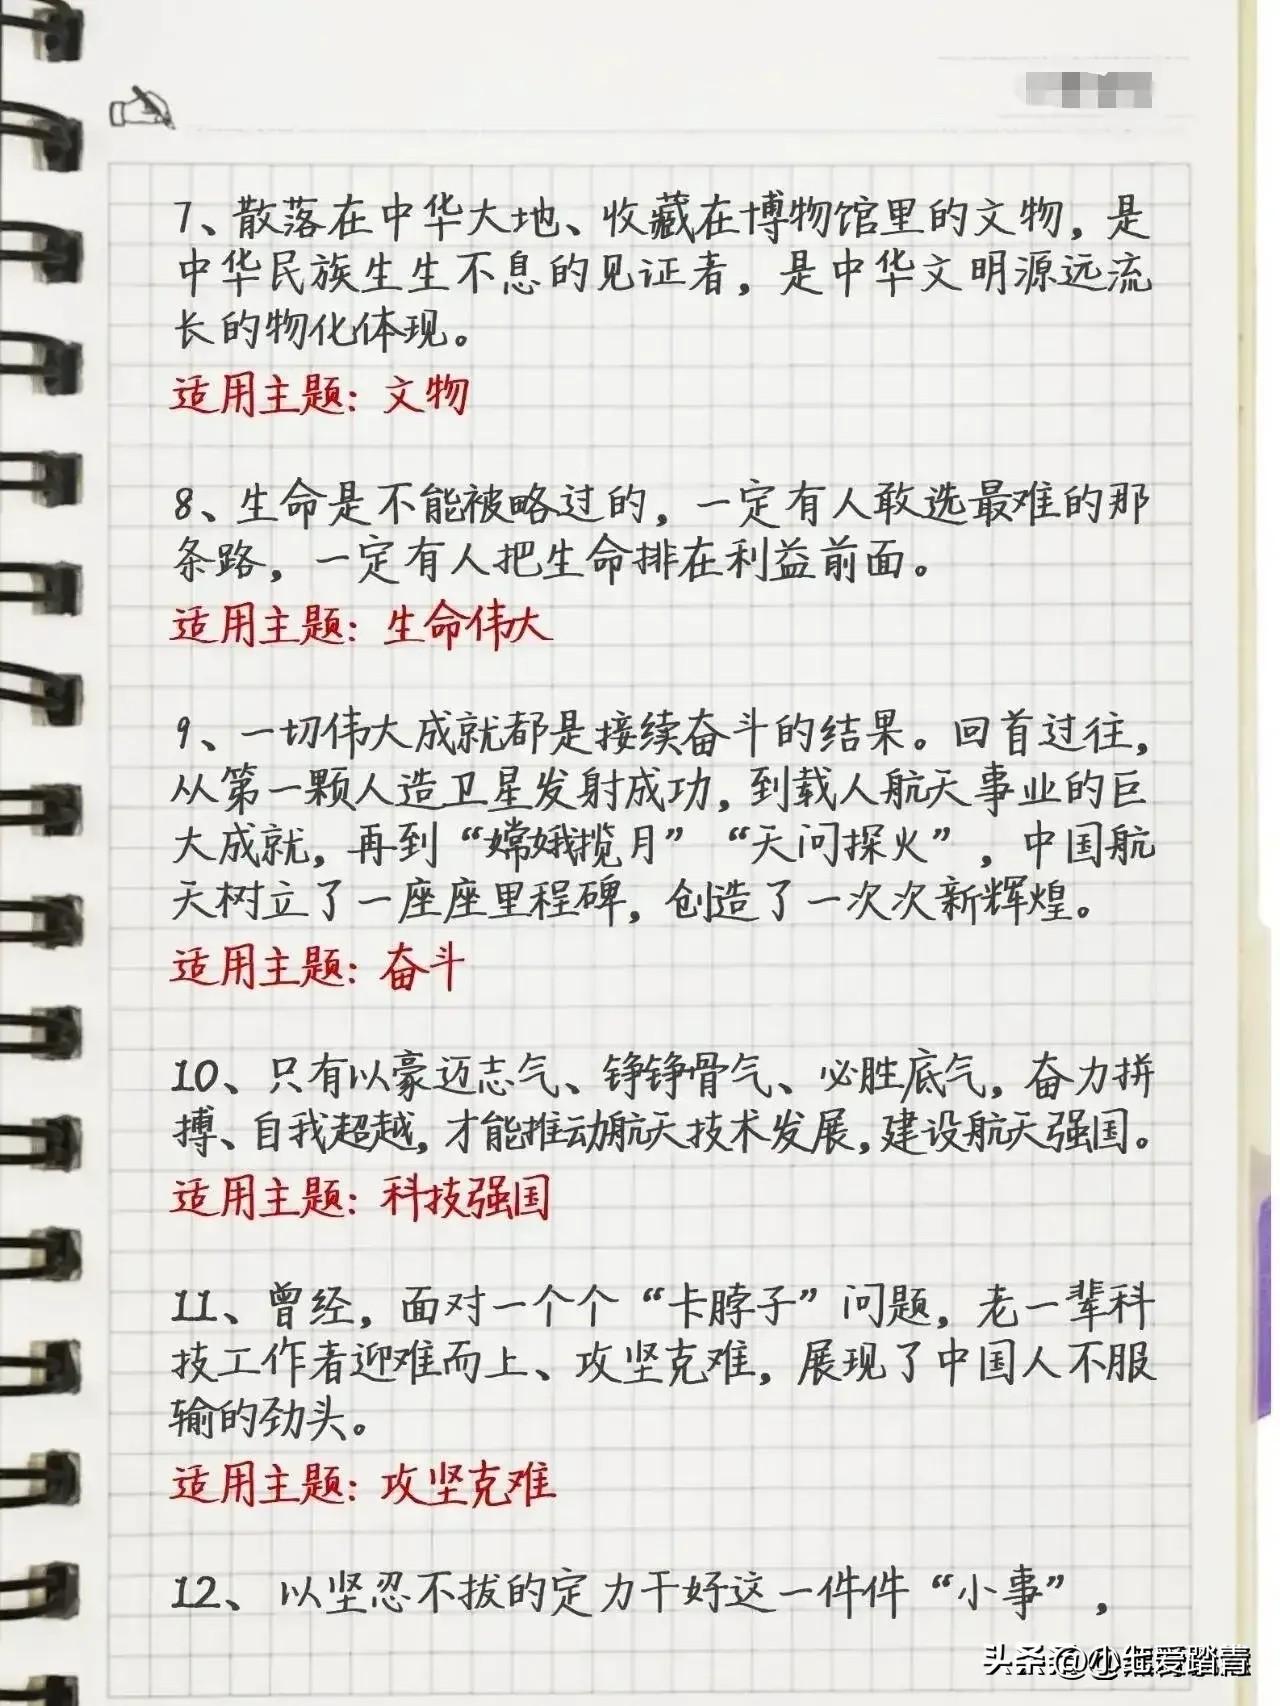 7、散落在中华大地、收藏在博物馆里的文物，是
中华民族生生不息的见证者，是中华文明源远流
长的物化体现。
适用主题：文物
8、生命是不能被略过的，一定有人敢选最难的那
条路，一定有人把生命排在利益前面。
适用主题：生命伟大
9、一切伟大成就都是接续奋斗的结果。回首过往，
从第一颗人造卫星发射成功，到载人航天事业的巨
大成就，再到“嫦娥揽月”“天问探火”，中国航
天树立了一座座里程碑，创造了一次次新辉煌。
适用主题：奋斗
10、只有以豪迈志气、铮铮骨气、必胜底气，奋力拼
搏、自我超越，才能推动航天技术发展，建设航天强国。
适用主题：科技强国
11、曾经，面对一个个“卡脖子”问题，老一辈科
技工作者迎难而上、攻坚克难，展现了中国人不服
输的劲头。
适用主题：攻坚克难
12、以坚忍不拔的定力干好这一件件“小事”，
头条 @小
爱踏青